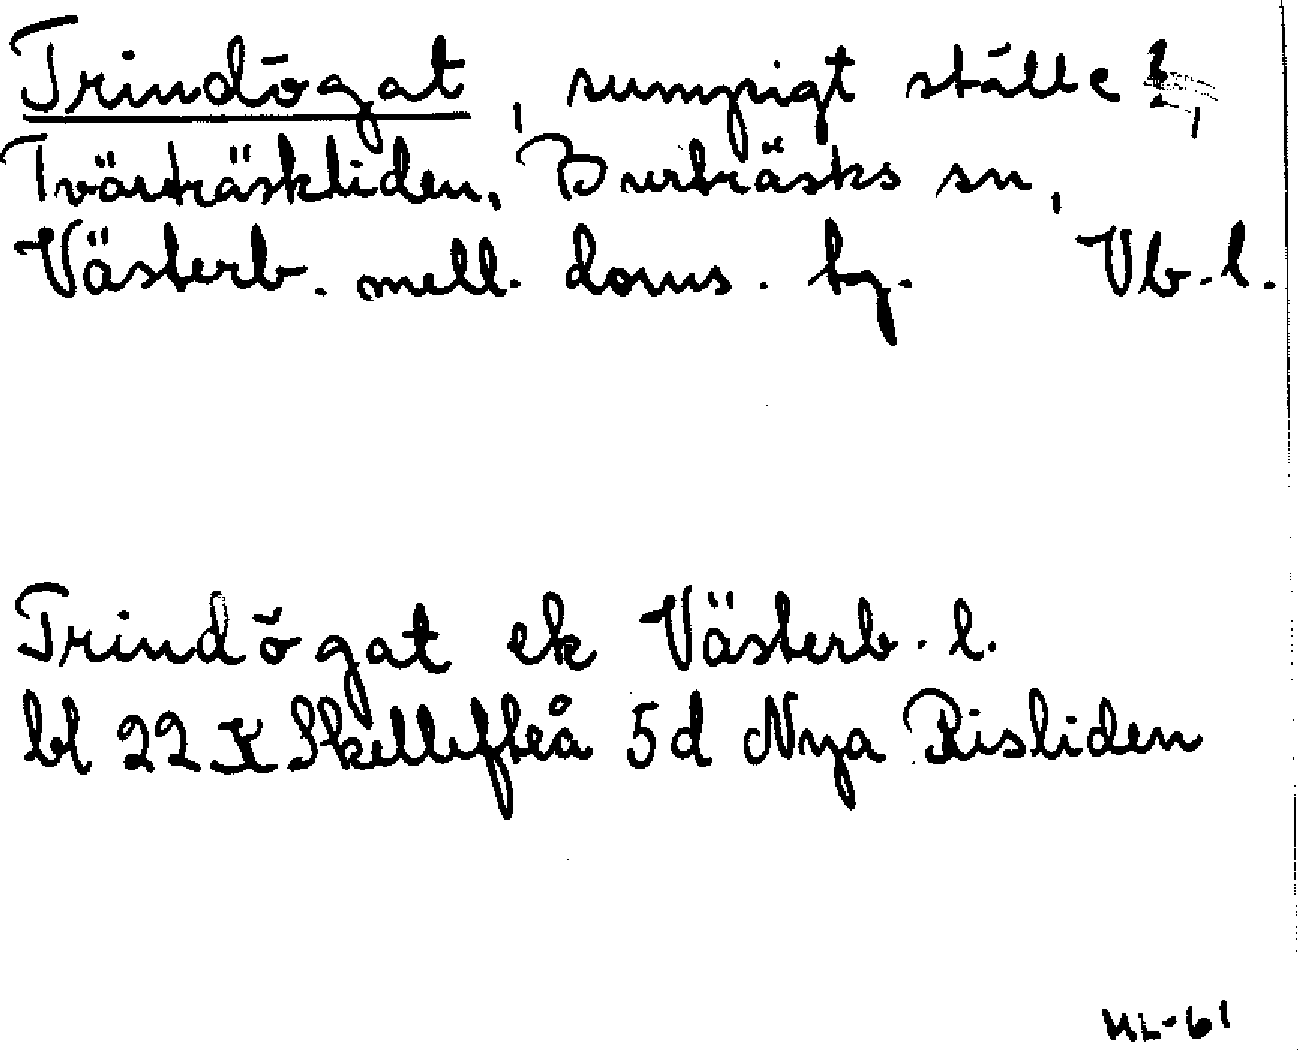 Trindögat, sumpigt ställe?,
Tvärträskliden, Burträsks sn,
Västerb. mell. doms. tg. Vb.l.
Trindögat ek Västerb. l.
bl 22 K Skellefteå 5d Nya Risliden
ML-61